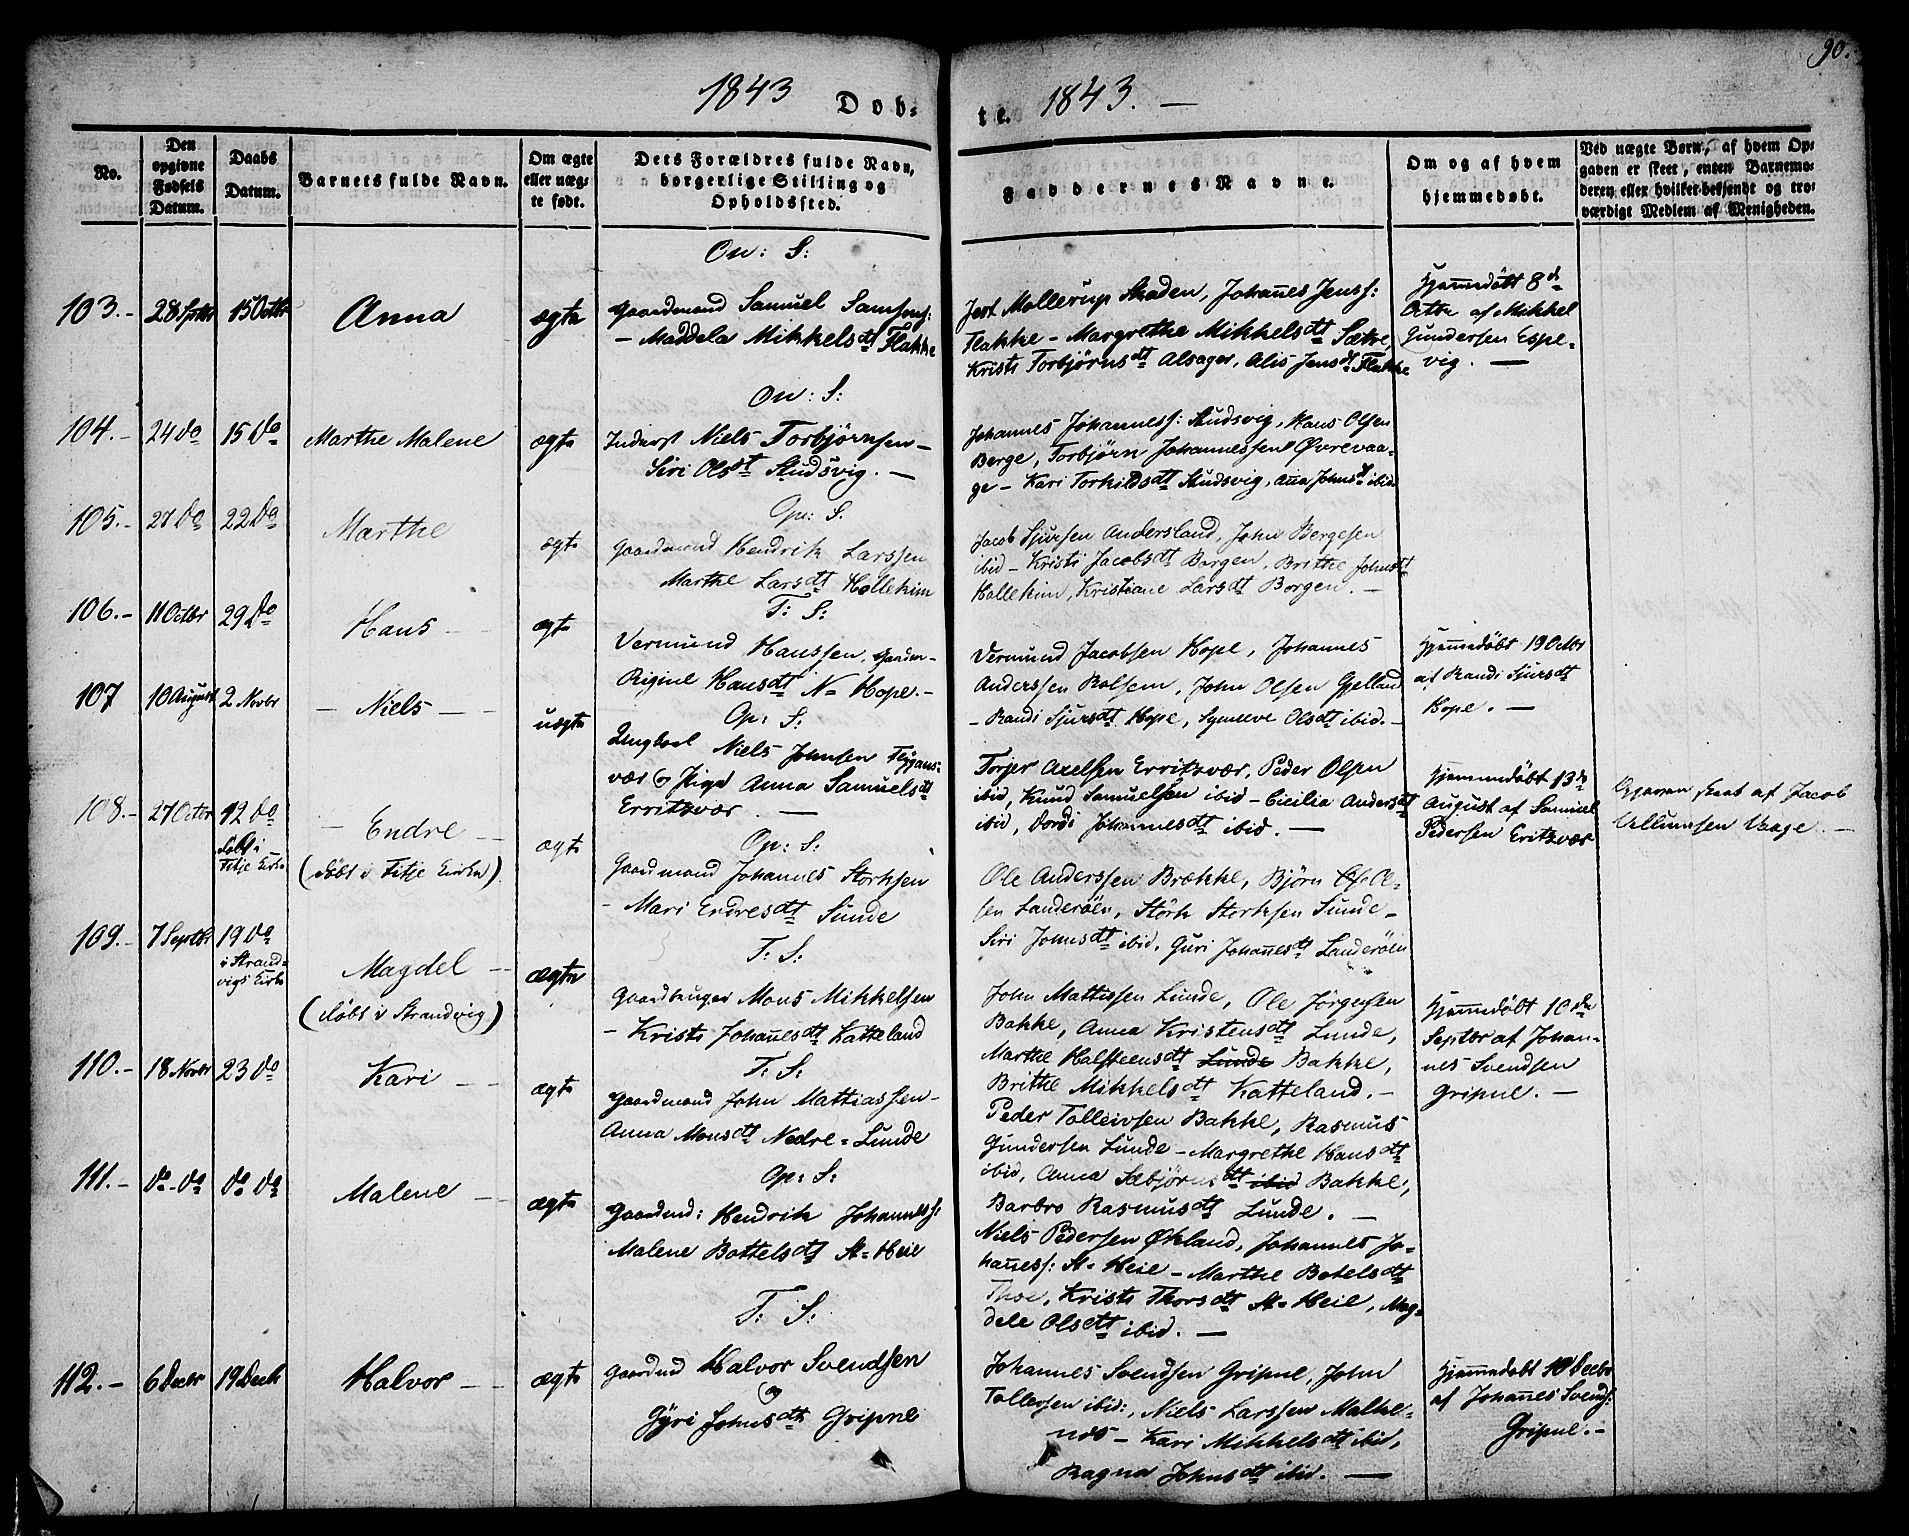 90.
1843 Døb=
te. 1843. —
No.
Den opgivne Fødsels Datum.
Daabs Datum.
Barnets fulde Navn.
Om ægte eller uæg= te født.
Dets Forældres fulde Navn, borgerlige Stilling og Opholdssted.
Faddernes Navne.
Om og af hvem hjemmedøbt.
Ved uægte Børn, af hvem Op= gaven er skeet, enten Barnemo= deren eller hvilket bekjendt og tro= værdigt Medlem af Menigheden.
On: S:
103.- 28 Septbr 15 Octbr Anna ægte
Gaardmand Samuel Samsons:
- Maddela Mikkelsdt Flakke
Jert Mollerup Skaden, Johanes Jenss:
Flakke - Margrethe Mikkelsdt Sætre,
Kristi Torbjørnsdt Alsager, Alis Jensdt Flakke
Hjemmedöbt 8d
Octbr af Mikkel
Gundersen Espe-
vig. —
On: S:
104.- 24 do 15 Do Marthe Malene ægte
Inderst Niels Torbjørnsen -
Siri Olsdt Studsvig. —
Johannes Johanness: Studsvig, Hans Olsen
Berge, Torbjørn Johannessen Øvrevaa-
ge - Kari Torkildsdt Studsvig, Aña Johnsdt ibid.
Op: S.
105.- 27 do 22 Do Marthe ægte
Gaardmand Hendrik Larssen
Marthe Larsdt Hollekim
Jacob Sjursen Andersland, John Bergesen
ibid - Kristi Jacobsdt Borgen, Brithe Johnsdt
Hollekim, Kristiane Larsdt Borgen. -
T: S:
106.- 11 Octbr 29 Do Hans - ægte
Vermund Hanssen, Gaardm-
Rigine Hansdt N= Hope.-
Vermund Jacobsen Hope, Johannes
Anderssen Rolsem, John Olsen Gjelland
- Randi Sjursdt Hope, Synneve Olsdt ibid.-
Hjemmedöbt 19 Octbr
af Randi Sjursdt
Hope. —
Op: S:
107 10 August 2 Novbr - Niels - uægte
Ungkarl Niels Johnsen Flygans-
vær & Pige Anna Samuelsdt
Erritzvær. —
Torger Axelsen Erritzvær, Peder Olsen
ibid, Knud Samuelsen ibid - Cicilia Andersdt
ibid, Dordi Johannesdt ibid. —
Hjemmedöbt 13de
August af Samuel
Pedersen Eritzvær
Opgaven skeet af Jacob
Villumsen Vaage. —
Op: S:
108.- 27 Octbr 12 do
döbt i
Fitje Kirke
- Endre -
(döbt i Fitje Kirke) ægte
Gaardmand Johannes Storksen
- Mari Endresdt Sunde
Ole Anderssen Brække, Bjørn Ol-
sen Landeröen, Störk Storksen Sunde -
Siri Johnsdt ibid. Guri Johanesdt Landeröen
T. S:
109.- 7 Septbr 19 do
i Strand-
vigs Kirke
Magdel -
(döbt i Strandvig) ægte
Gaardbruger Mons Mikkelsen
- Kristi Johanesdt Katteland
John Mattissen Lunde, Ole Jörgensen
Bakke, Anna Kristensdt Lunde,
Marthe Halsteensdt Lunde Bakke,
Brithe Mikkelsdt Katteland. -
Hjemmedöbt 10de
Septbr af Johan-
nes Svendsen
Gripne. —
T: S:
110.- 18 Novbr 23 do Kari - ægte
Gaardmand John Mattiassen -
Anna Monsdt Nedre=Lunde
Peder Tolleivsen Bakke, Rasmus
Gundersen Lunde - Margrethe Hansdt
ibid, Anna Sæbjörnsdt ibid Bakke,
Barbro Rasmusdt Lunde. —
Op: S:
111.- do do do do Malene - ægte
Gaardmd: Hendrik Johanness:
Malene Bottelsdt St= Heie
Niels Pedersen Økland, Johannes Jo-
hañess: St= Heie - Marthe Botelsdt
Thoe, Kristi Thorsdt St= Heie, Mag-
dele Olsdt ibid. —
T: S:
112.- 6 Decbr 19 Decb Halvor - ægte
Gaardmd Halvor Svendsen
&
Gyri Johnsdt Gripne
Johannes Svendsen Gripne, John
Tollefsen ibid:, Niels Larssen Malke-
næs - Kari Mikkelsdt ibid,
Ragna Johnsdt ibid. —
Hjemmedöbt 10 Decbr
af Johañes Svends:
Gripne. -